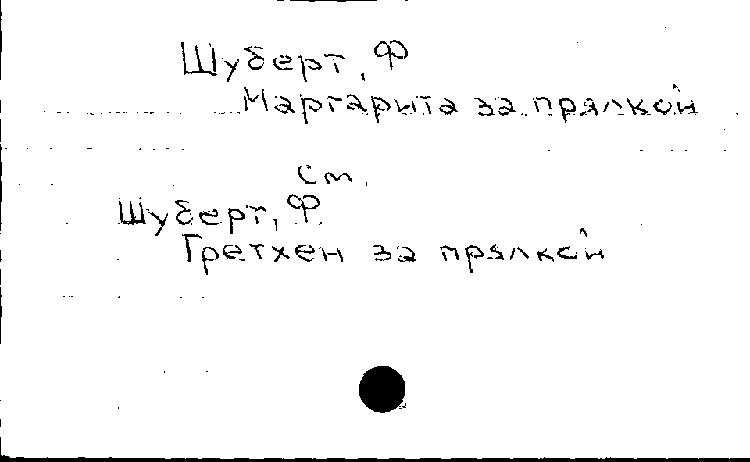 Шуберт, Ф
Маргарита за прялкой
см.
Шуберт, Ф.
Гретхен за прялкой